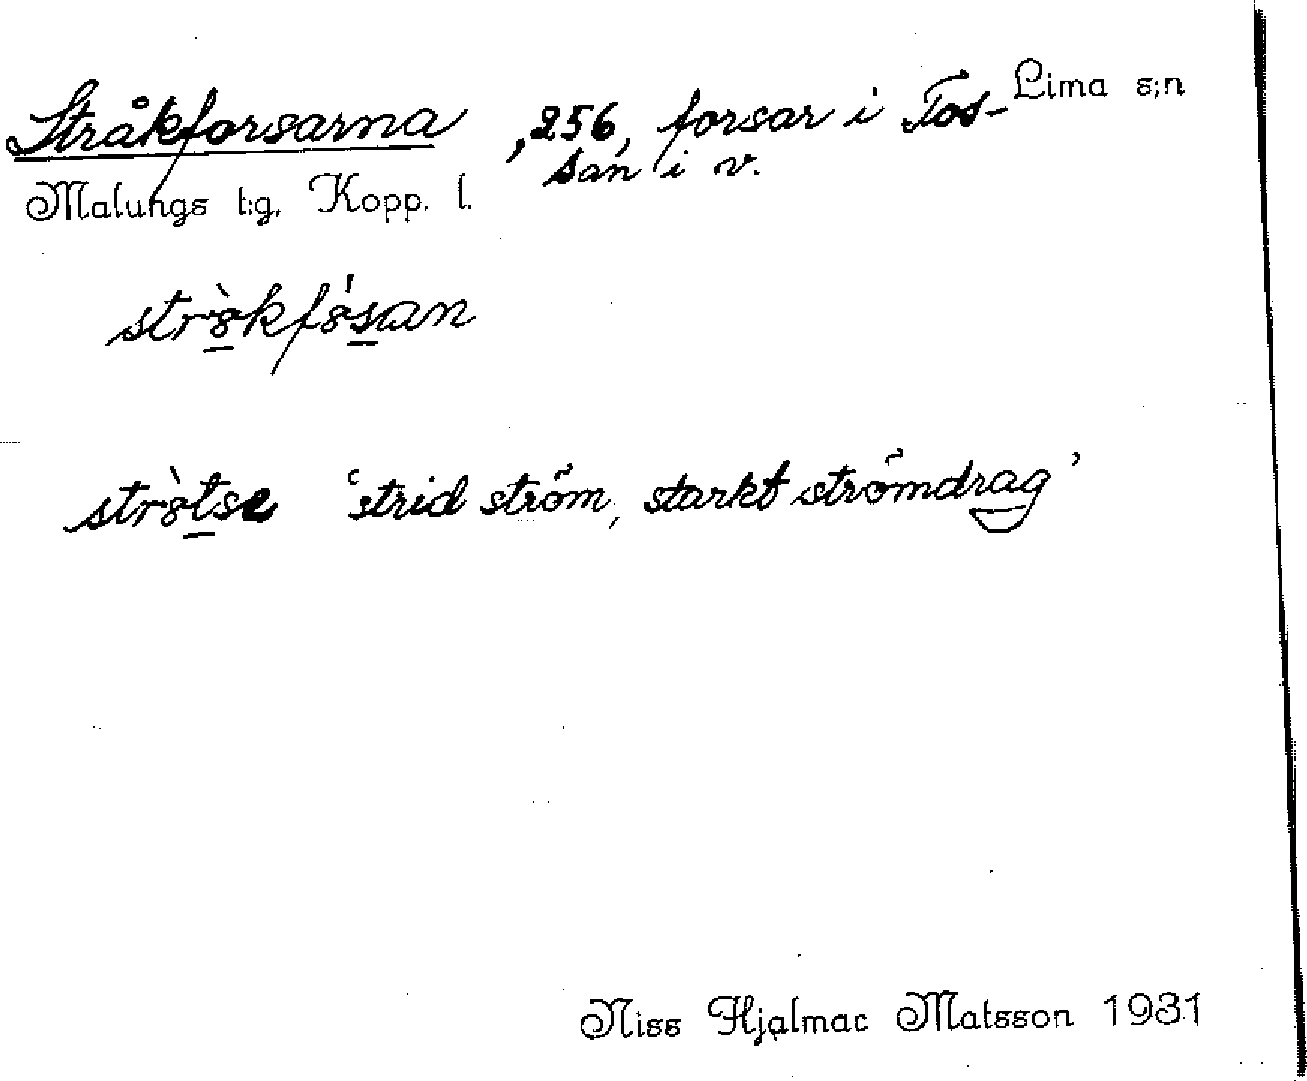 Stråkforsarna, 256, forsar i Tos- Lima s:n
san i v.
Malungs t:g. Kopp. l.
strò̱kfósan
strò̱tse 'strid ström, starkt strömdrag'
Niss Hjalmar Matsson 1931